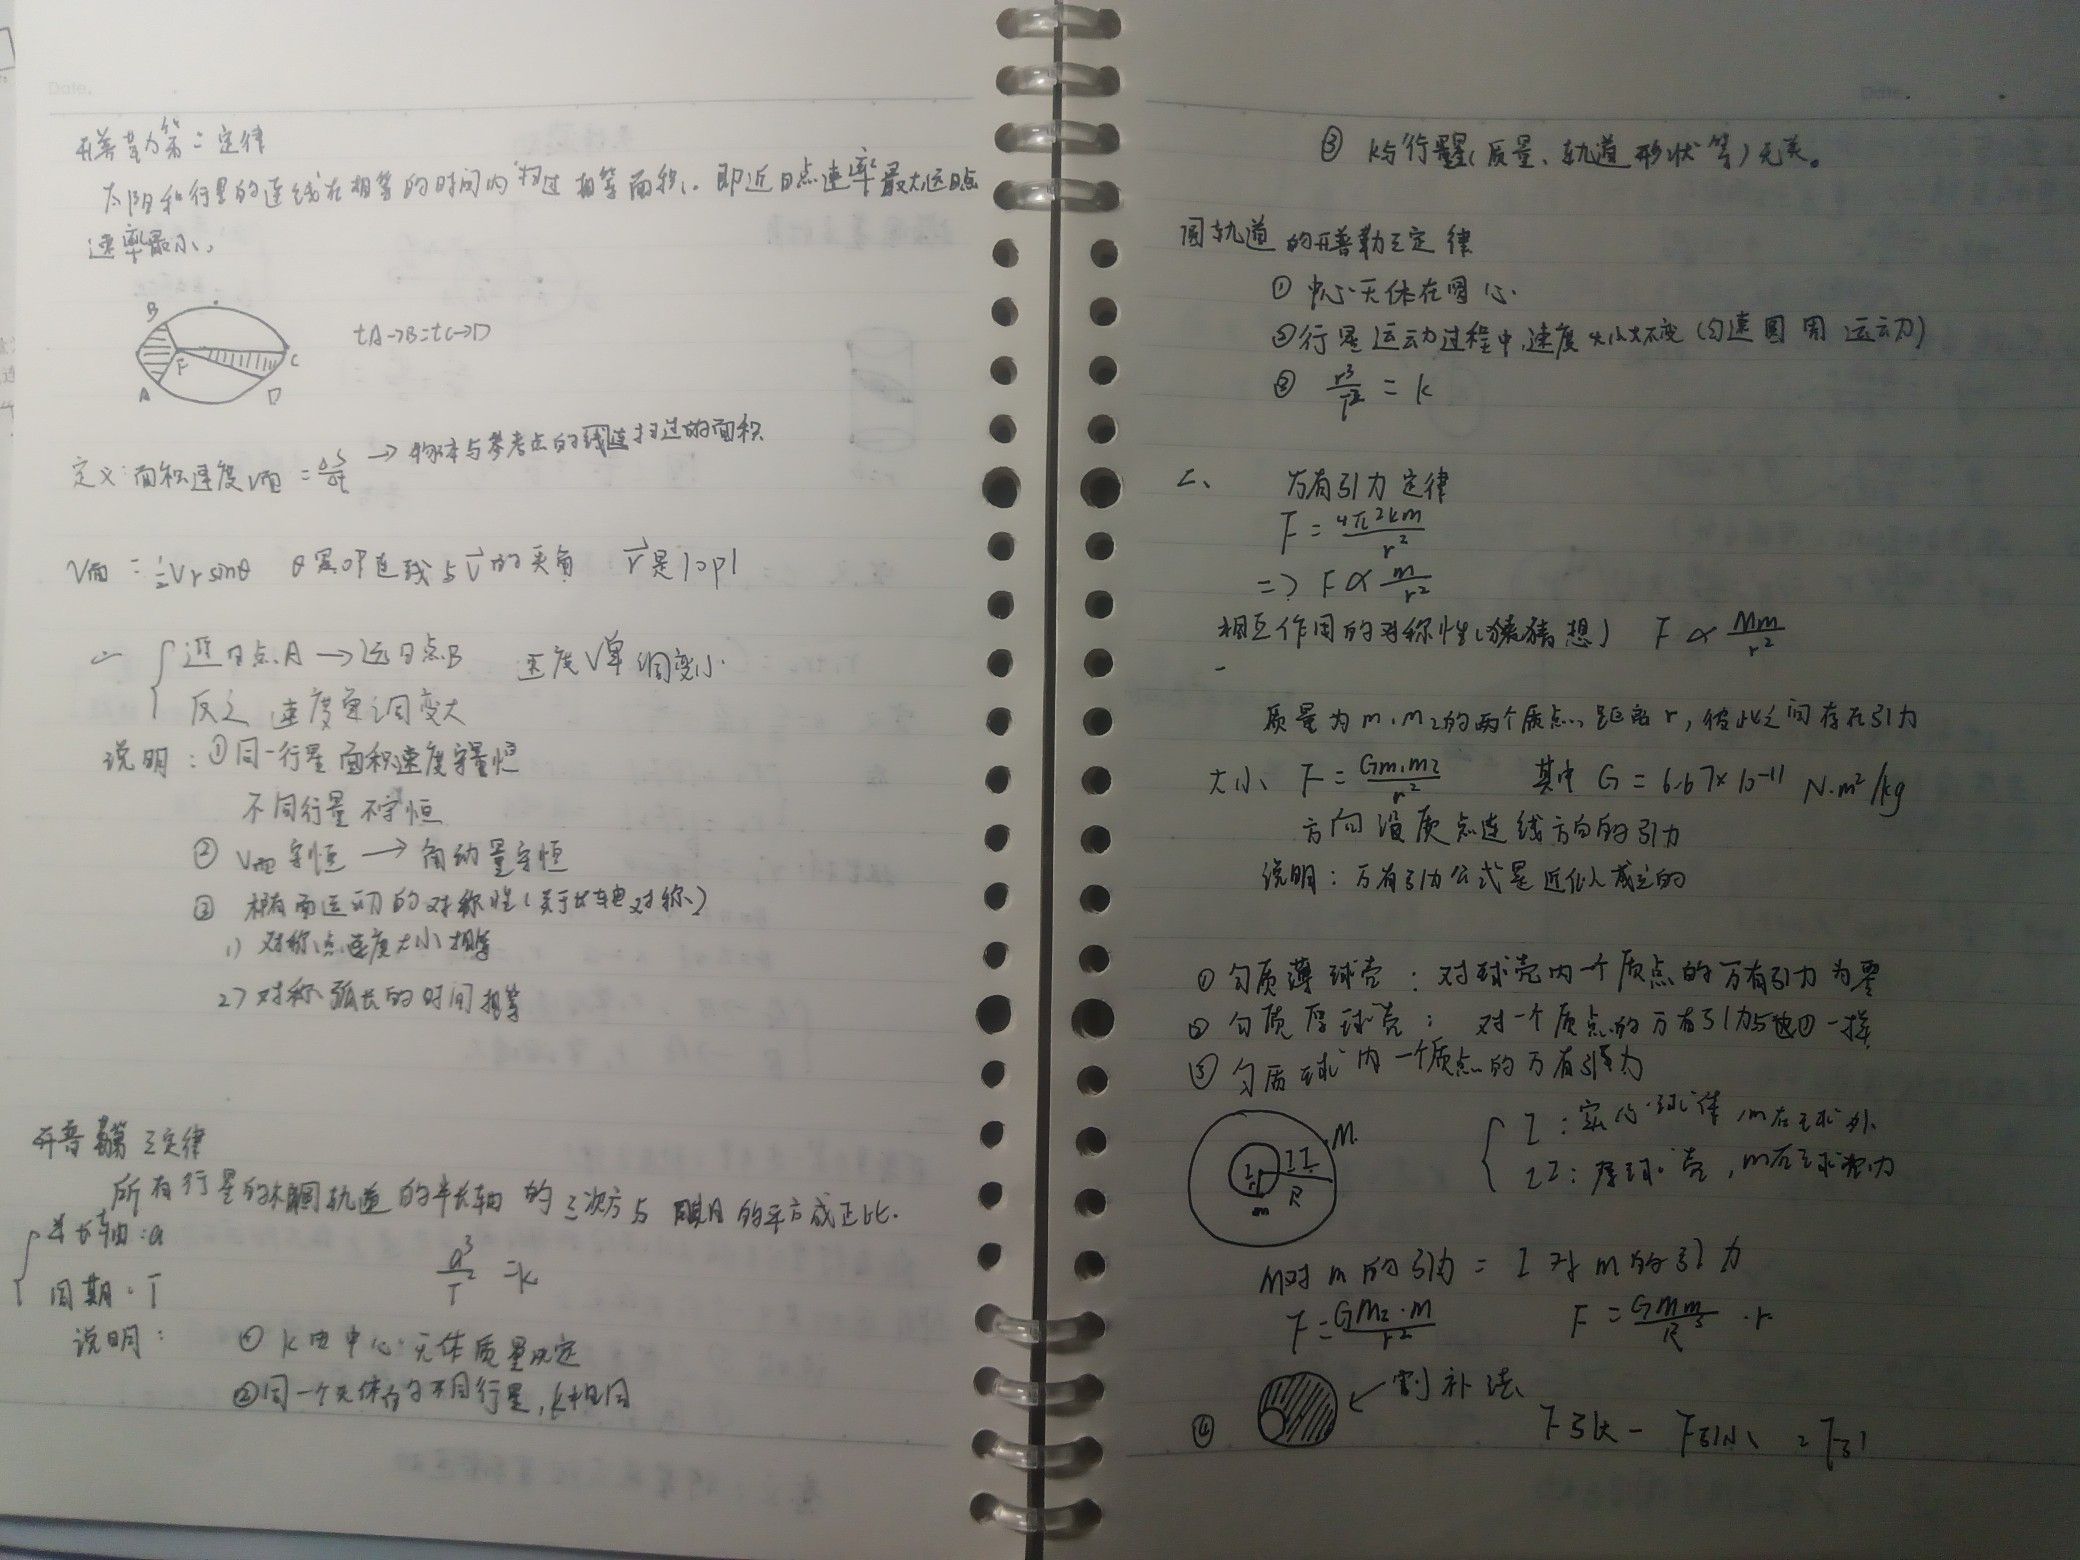 Date.
开普勒第二定律
太阳和行星的连线在相等的时间内扫过相等面积.即近日点速率最大远日点
速率最小。
B
F
C
A
D
tA→B=tC→D
定义:面积速度V面=ΔS/Δt → 物体与参考点的线连扫过的面积
V面=½Vr sinθ θ是OP连线与V⃗的夹角 r⃗是|OP|
近日点A→远日点B 速度V单调变小
反之 速度单调变大
说明:①同一行星面积速度守恒
不同行星不守恒
②V面守恒→角动量守恒
③椭圆运动的对称性(关于长轴对称)
1)对称点速度大小相等
2)对称弧长的时间相等
开普勒第三定律
所有行星的椭圆轨道的半长轴的三次方与周期的平方成正比.
半长轴:a
周期:T
a³/T²=k
说明: ①k由中心天体质量决定
②同一个天体的不同行星,k相同
Date.
③ k与行星(质量、轨道形状等)无关。
圆轨道的开普勒三定律
①中心天体在圆心.
②行星运动过程中,速度大小不变(匀速圆周运动)
③ r³/T²=k
二、 万有引力定律
F=4π²km/r²
=> F∝m/r²
相互作用的对称性(猜想) F∝Mm/r²
质量为m₁m₂的两个质点,距离r,彼此之间存在引力
大小 F=Gm₁m₂/r² 其中G=6.67×10-11 N·m²/kg
方向沿质点连线方向的引力
说明:万有引力公式是近似成立的
①匀质薄球壳:对球壳内一个质点的万有引力为零
②匀质厚球壳: 对一个质点的万有引力与①一样
③匀质球内一个质点的万有引力
I:实心球体,m在球外
II:厚球壳,m在球壳内
M
I
II
r
R
m
M对m的引力=I对m的引力
F=GMI·m/r² F=GMm/R³·r
④ ←割补法
F引大-F引小=F引